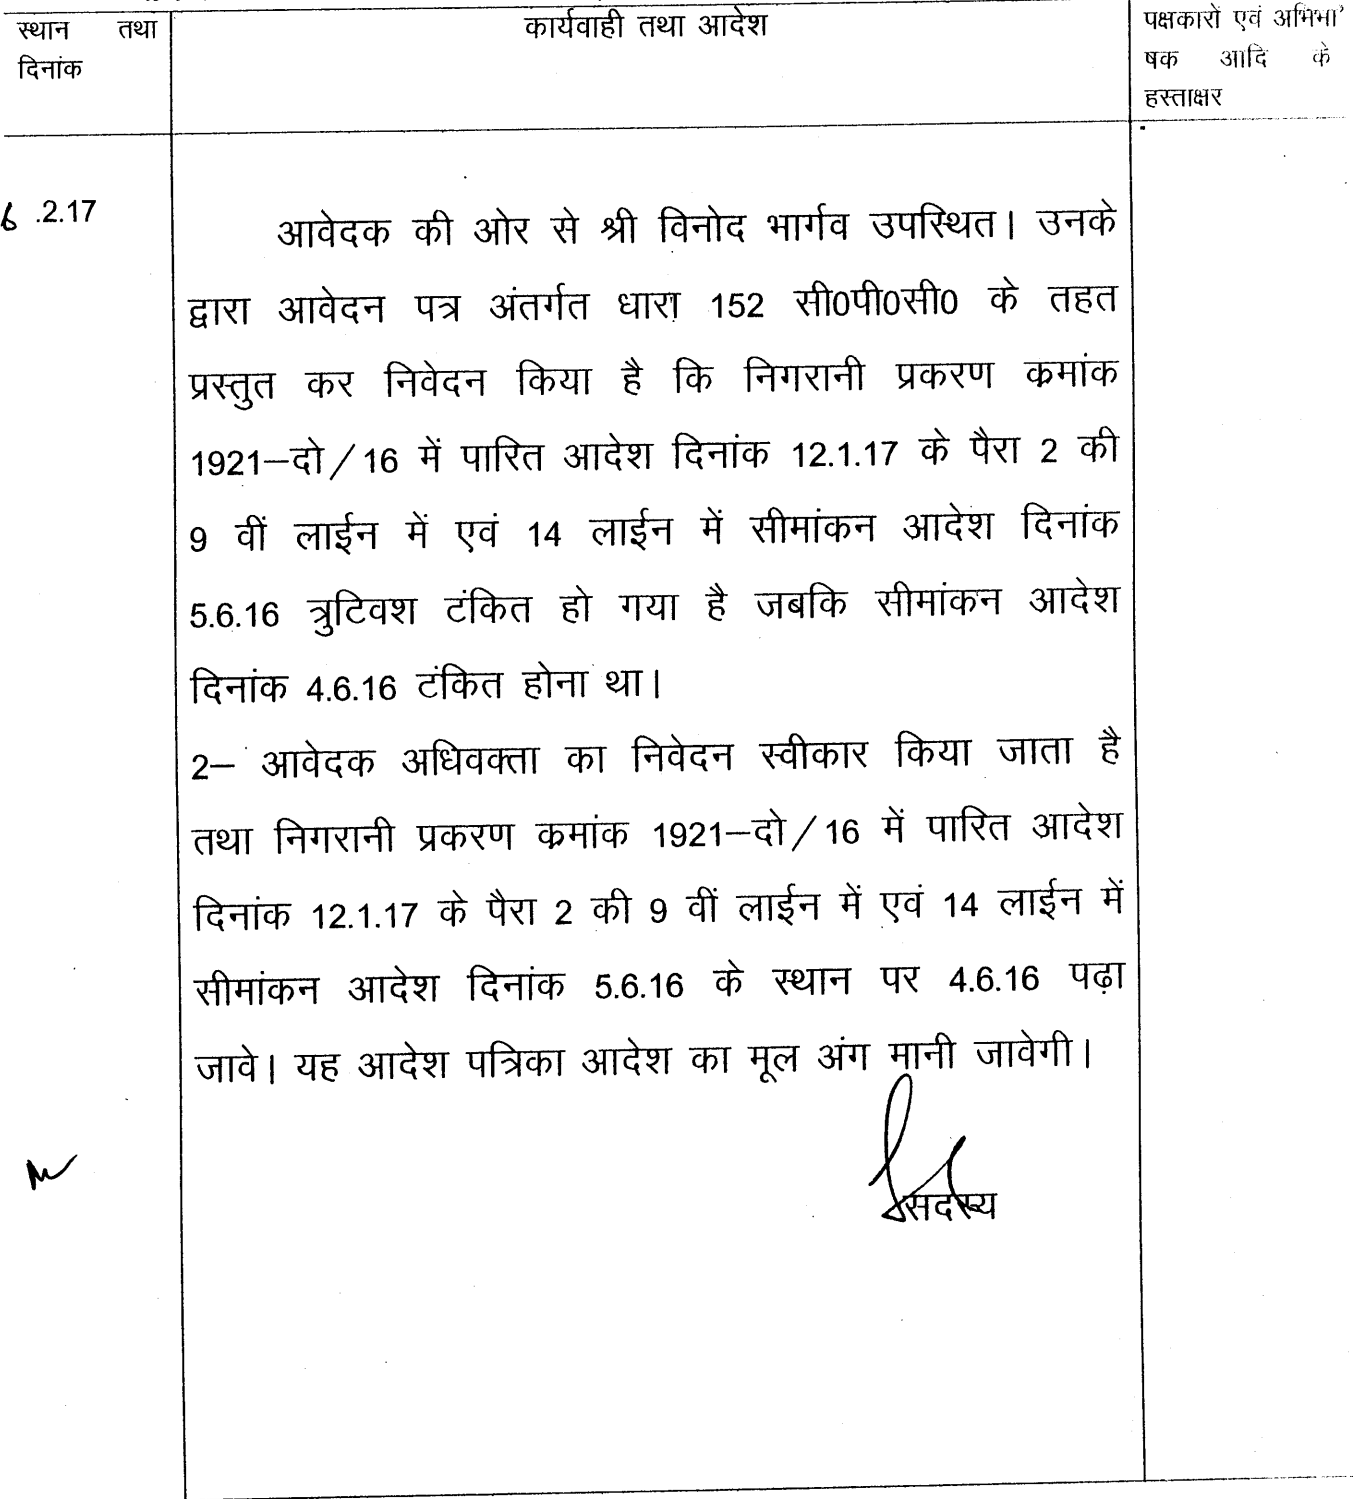 स्थान तथा
दिनांक
कार्यवाही तथा आदेश
पक्षकारों एवं अभिभा
षक आदि के
हस्ताक्षर
6 .2.17
आवेदक की ओर से श्री विनोद भार्गव उपस्थित। उनके
द्वारा आवेदन पत्र अंतर्गत धारा 152 सी0पी0सी0 के तहत
प्रस्तुत कर निवेदन किया है कि निगरानी प्रकरण कमांक
1921–दो/16 में पारित आदेश दिनांक 12.1.17 के पैरा 2 की
9 वीं लाईन में एवं 14 लाईन में सीमांकन आदेश दिनांक
5.6.16 त्रुटिवश टंकित हो गया है जबकि सीमांकन आदेश
दिनांक 4.6.16 टंकित होना था।
2– आवेदक अधिवक्ता का निवेदन स्वीकार किया जाता है
तथा निगरानी प्रकरण कमांक 1921–दो/16 में पारित आदेश
दिनांक 12.1.17 के पैरा 2 की 9 वीं लाईन में एवं 14 लाईन में
सीमांकन आदेश दिनांक 5.6.16 के स्थान पर 4.6.16 पढ़ा
जावे। यह आदेश पत्रिका आदेश का मूल अंग मानी जावेगी।
सदस्य